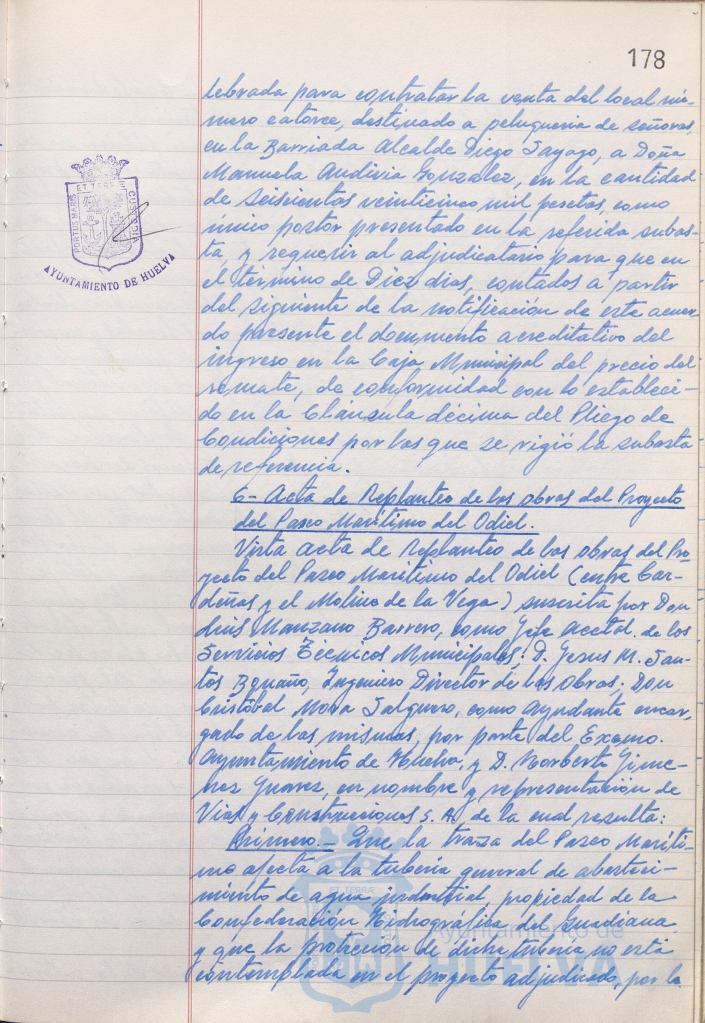 178
lebrada para contratar la venta del local nú-
mero catorce, destinado a peluquería de señoras,
en la Barriada Alcalde Diego Sayago, a Doña
Manuela Audivia González, en la cantidad
de seiscientos veinticinco mil pesetas, como
único postor presentado en la referida subas-
ta, y requerir al adjudicatario para que en
el término de Diez días, contados a partir
del siguiente de la notificación de este acuer-
do presente el documento acreditativo del
ingreso en la Caja Municipal del precio del
remate, de conformidad con lo estableci-
do en la Cláusula décima del Pliego de
Condiciones por las que se rigió la subasta
de referencia.
6- Acta de Replanteo de las obras del Proyecto
del Paseo Marítimo del Odiel.
Vista acta de Replanteo de las obras del Pro-
yecto del Paseo Marítimo del Odiel (entre Car-
deñas y el Molino de la Vega) suscrita por Don
Luis Manzano Barrero, como Jefe Acctal. de los
Servicios Técnicos Municipales; D. Jesus M. San-
tos Ingeniero Director de las Obras; Don
Cristóbal Mora Salguero, como ayudante encar-
gado de las mismas, por parte del Excmo.
Ayuntamiento de Huelva, y D. Norberto Jime-
nez Juarez, en nombre y representación de
Vias y Construcciones S.A. de la cual resulta:
Primero.- Que la traza del Paseo Maríti-
mo afecta a la tubería general de abasteci-
miento de agua industrial, propiedad de la
Confederación Hidrográfica del Guadiana
y que la protección de dicha tubería no está
contemplada en el proyecto adjudicado, por lo
PORTUS MARIS ET TERRAE CUSTODIA
AYUNTAMIENTO DE HUELVA
ET TERRÆ
Ayuntamiento de
HUELVA